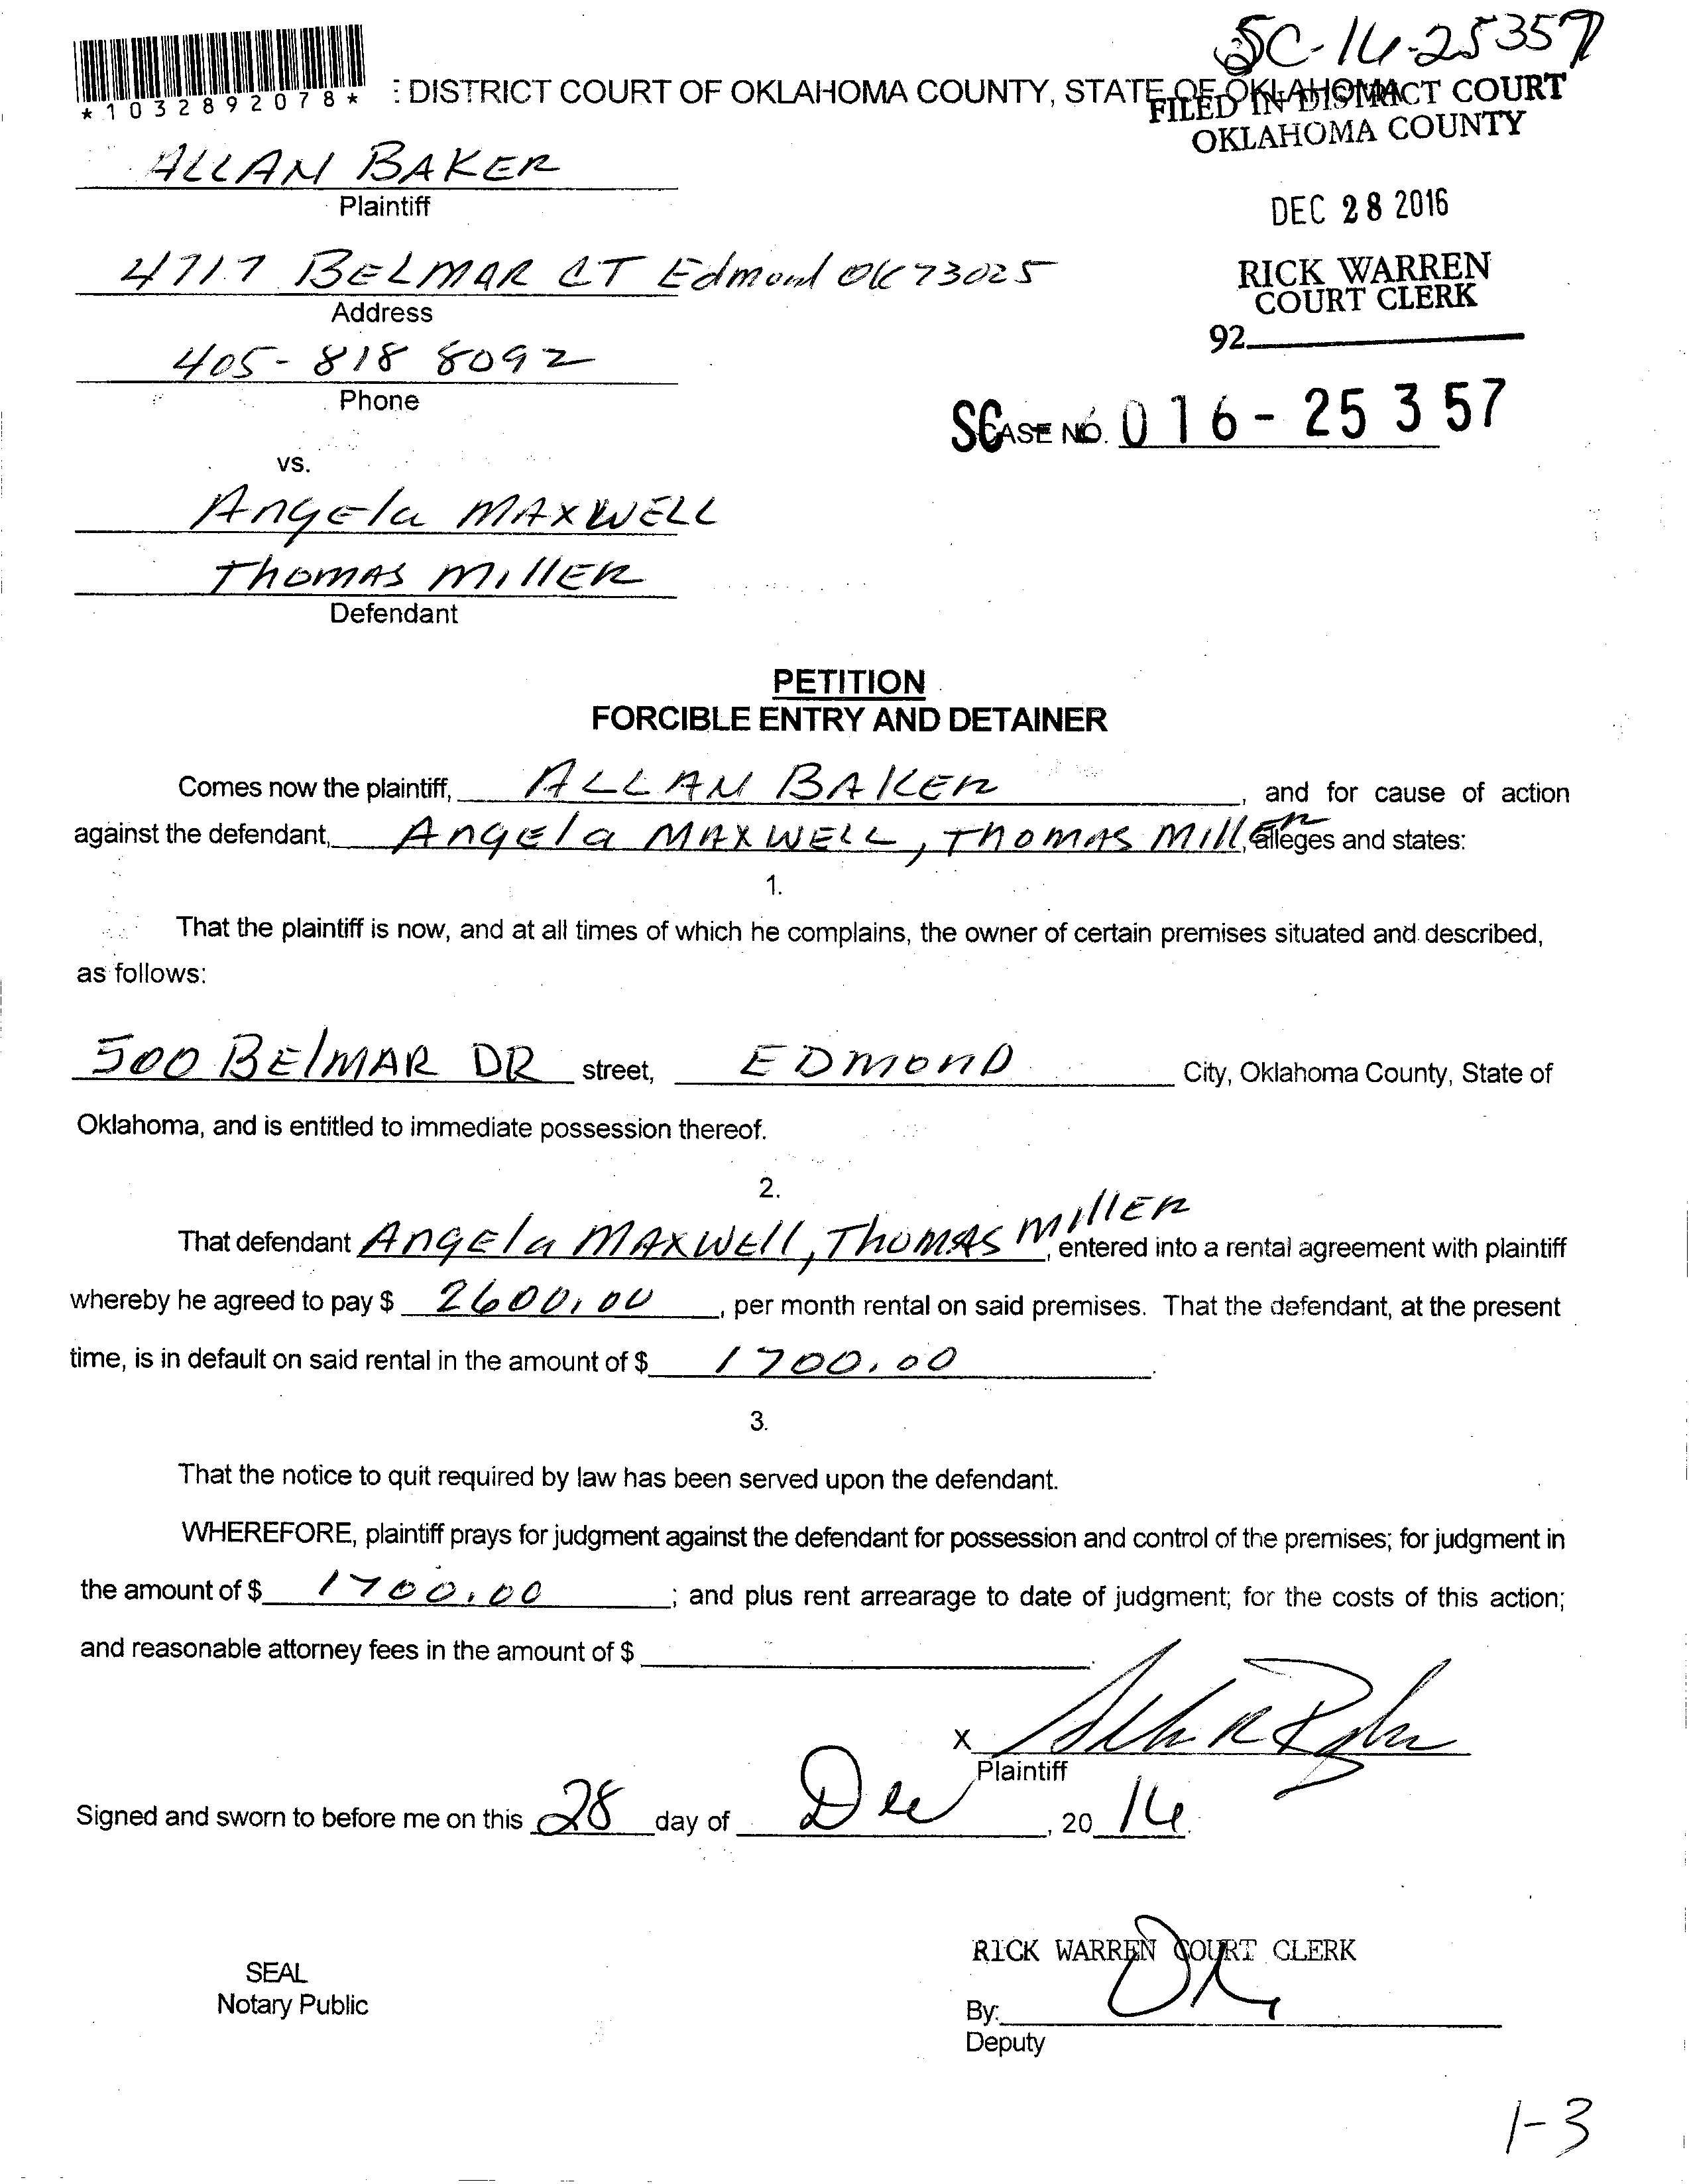 SC-16-25357
*1032892078*
: DISTRICT COURT OF OKLAHOMA COUNTY, STATE OF OKLAHOMA
FILED IN DISTRICT COURT
OKLAHOMA COUNTY
ALLAN BAKER
Plaintiff
DEC 28 2016
4717 BELMAR CT Edmond OK 73025
Address
RICK WARREN
COURT CLERK
92
405-818 8092
Phone
SCASE NO. 016-25357
vs.
Angela MAXWELL
Thomas Miller
Defendant
PETITION
FORCIBLE ENTRY AND DETAINER
Comes now the plaintiff, ALLAN BAKER, and for cause of action
against the defendant, Angela MAXWELL, Thomas Miller, alleges and states:
1.
That the plaintiff is now, and at all times of which he complains, the owner of certain premises situated and described,
as follows:
500 BElMAR DR street, EDmonD City, Oklahoma County, State of
Oklahoma, and is entitled to immediate possession thereof.
2.
That defendant Angela MAXWEll, Thomas Miller, entered into a rental agreement with plaintiff
whereby he agreed to pay $ 2600.00, per month rental on said premises. That the defendant, at the present
time, is in default on said rental in the amount of $ 1700.00.
3.
That the notice to quit required by law has been served upon the defendant.
WHEREFORE, plaintiff prays for judgment against the defendant for possession and control of the premises; for judgment in
the amount of $ 1700.00; and plus rent arrearage to date of judgment; for the costs of this action;
and reasonable attorney fees in the amount of $ .
X
Plaintiff
Signed and sworn to before me on this 28 day of Dec, 20 16.
RICK WARREN COURT CLERK
SEAL
Notary Public
By:
Deputy
1-3